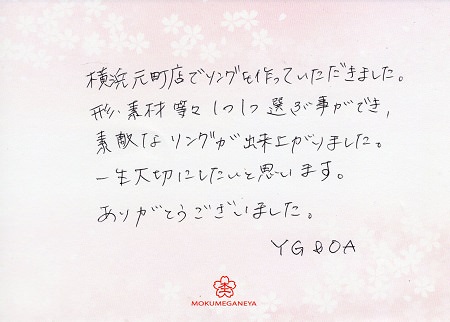 横浜元町店でリングを作っていただきました。
形、素材等々1つ1つ選ぶ事ができ、
素敵なリングが出来上がりました。
一生大切にしたいと思います。
ありがとうございました。
YG & OA
MOKUMEGANEYA